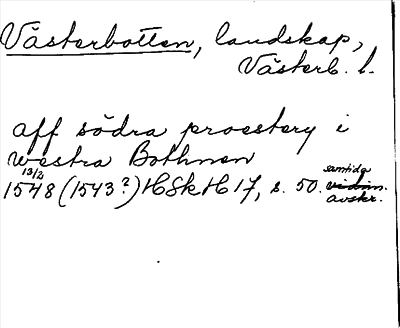 Västerbotten, landskap,
Västerb. l.
aff södra proestery i
westra Bothnen
13/2 samtida
1548 (1543?) HSkH 17, s. 50. vidim.
avskr.